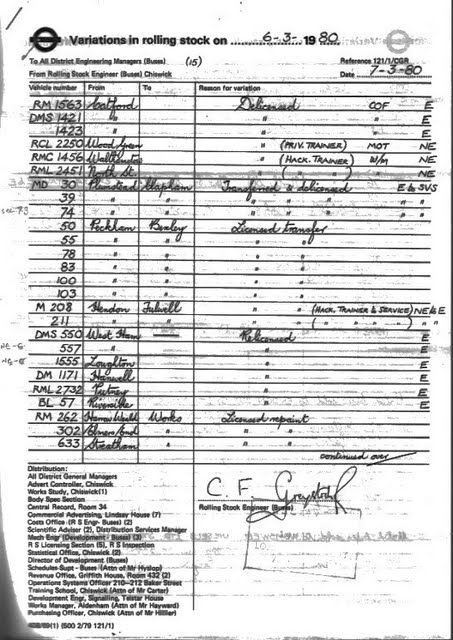 Variations in rolling stock on 6-3-1980
To All District Engineering Managers (Buses) (15) Reference 121/1/CGR
From Rolling Stock Engineer (Buses) Chiswick Date 7-3-80
Vehicle number From To Reason for variation
RM 1563 Catford Delicensed COF E
DMS 1421 " " " E
1423 " " " E
RCL 2250 Wood Green " (PRIV. TRAINER) MOT NE
RMC 1456 Walthamstow " (HACK. TRAINER) W/M NE
RML 2451 North St " ( " " ) " NE
MD 30 Plumstead Clapham Transferred & delicensed E to SVS
39 " " " " " "
74 " " " " " "
50 Peckham Bexley Licensed transfer
55 " " " "
78 " " " "
83 " " " "
100 " " " "
103 " " " "
M 208 Hendon Fulwell " " (HACK. TRAINER to SERVICE) NE to E
211 " " " " ( " " " ) " "
DMS 550 West Ham Relicensed E
557 " " E
1555 Loughton " E
DM 1171 Hanwell " E
RML 2732 Putney " E
BL 57 Riverside " E
RM 262 Harrow Weald Works Licensed repaint
302 Elmers End " " "
633 Streatham " " "
continued over
Distribution:
All District General Managers
Advert Controller, Chiswick
Works Study, Chiswick(1)
Body Spec Section
Central Record, Room 34
Commercial Advertising, Lindsay House (7)
Costs Office (R S Engr- Buses) (2)
Scientific Adviser (2), Distribution Services Manager
Mech Engr (Development - Buses) (3)
R S Licensing Section (5), R S Inspection
Statistical Office, Chiswick (2)
Director of Development (Buses)
Schedules-Supt - Buses (Attn of Mr Hyslop)
Revenue Office, Griffith House, Room 432 (2)
Operations Systems Officer 210–212 Baker Street
Training School, Chiswick (Attn of Mr Carter)
Development Engr, Signalling, Telstar House
Works Manager, Aldenham (Attn of Mr Hayward)
Purchasing Officer, Chiswick (Attn of Mr Hillier)
C. F.
Rolling Stock Engineer (Buses)
(1) (500 2/79 121/1)